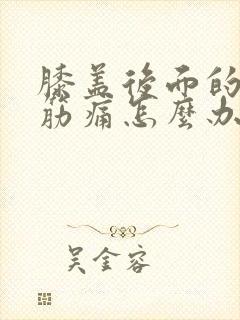 膝盖後面的
筋痛怎麼办
吴金容